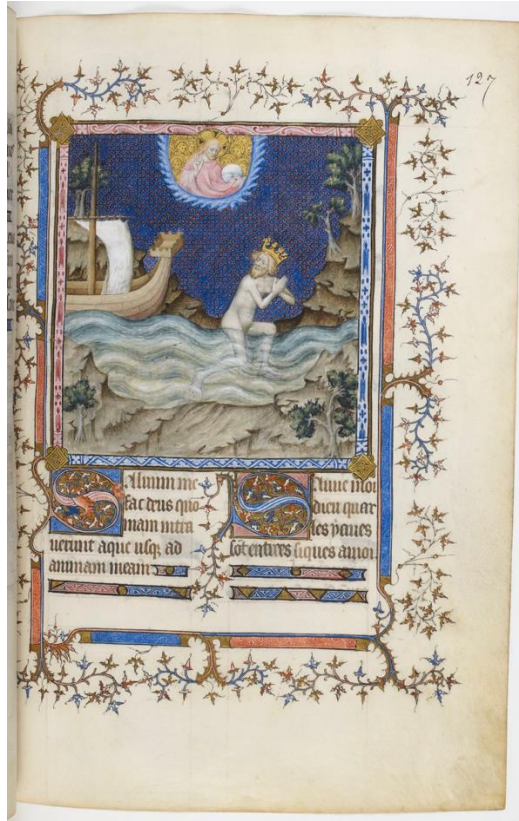 127
Saluum me
fac deus quo
niam intra
uerunt aque usq; ad
animam meam
Sauue moi
dieu quar
les yaues
sōt entrees iuques amoi